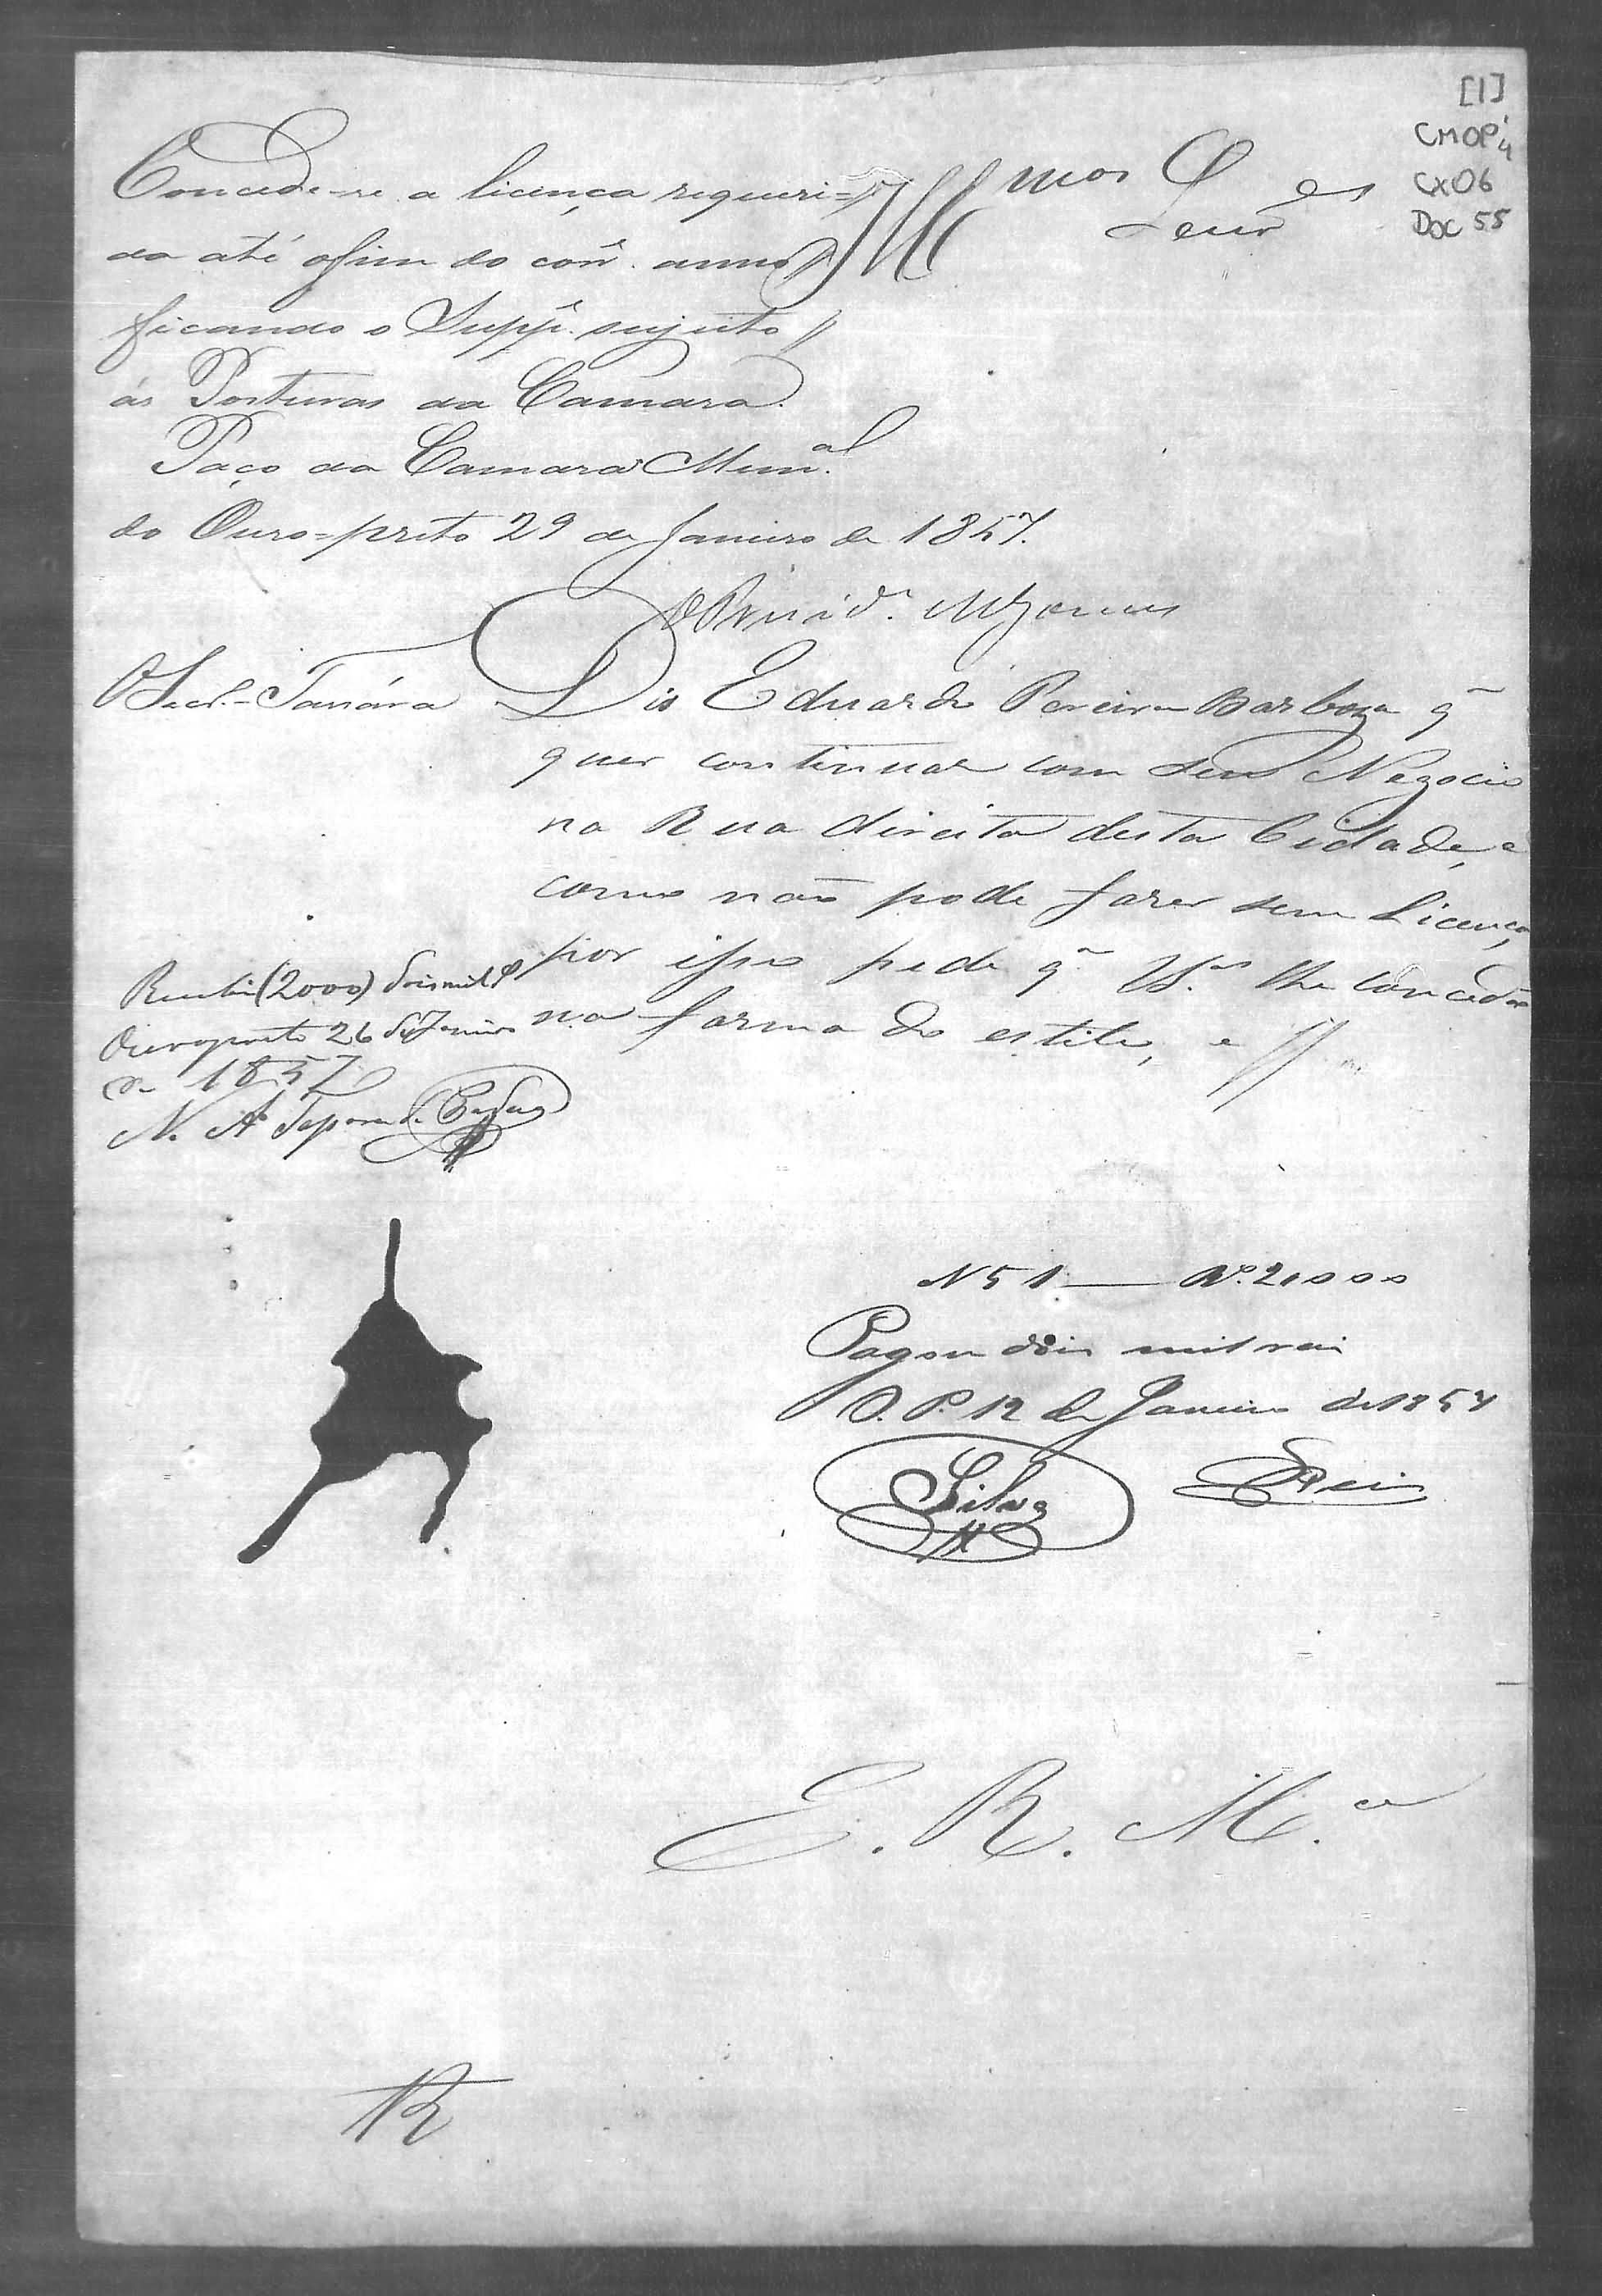 [1]
CMOP
CX06
DOC 55
Concede-se a licença requeri=
da até ofim do corr.e anno,
ficando o Supp.e sujeito
ás Posturas da Camara.
Paço da Camara Mun.al
do Ouro=preto 29 de Janeiro de 1857.
O Secr.o
Ill mos Senr es
Dis Eduardo Pereira Barboza q~
quer continuar com seu Negocio
na Rua direita desta Cidade, e
como não pode fazer sem Licença,
por isso pede q~ VS.as lhe concedão
na forma do estilo, e
Recebi (2000) dois mil r
Ouropreto 26 de Janeiro
de 1857
N 51 — Rs. 2,000
Pagou dois mil reis
O. P. 12 de Janeiro de 1857
Silva Reis
E. R. M.ce